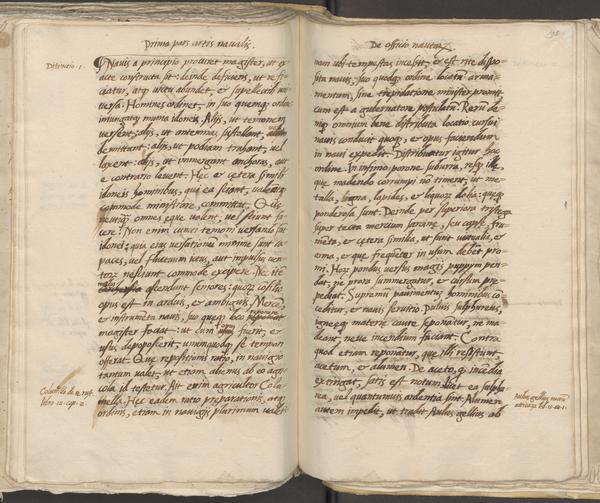 Prima pars artis navalis.
Distinctio. 1.
Navis a principio procuret magister, ut
acte constructa sit: deinde deficiens, ut refi-
ciatur, atq victu abundet, et supellectili uni-
versa. Homines ordinet, in suo quemq ordine
iniungatq munia idoneis. Alijs, ut temonem
versent: alijs, ut antemnas sustollant,
demittant: alijs, ut podiam trahant, vel
laxent: alijs, ut immergant anchoras, aut
e contrario levent. Hec et cetera similia
idoneis hominibus, qui ea sciant, valeantq
commode ministrare, committat.
omnes eque volent, vel sciunt fa-
cere. Non enim cuncti temoni versando sunt
idonei: quia eius versationi minime sunt ca-
paces, vel fluctuum ictus, aut impulsu ven-
toru nesciunt commode excipere.
ostendunt seniores: quoru consilio
opus est in arduis, et ambiguis.
et instrumenta navis, suo queq loco
magister faciat: ut cum opus fuerit, et
usus deposcerit, unumquodq se tempori
offerat. Que repositionis ratio, in navigio
tantum valet, ut etiam alienus ab eo agri-
cola id testetur. Ait enim agricultor Colu-
mella. Hec eadem ratio preparationis, atq
ordinis, etiam in navigijs plurimum valet.
Columella de re rust.
libro. 12. cap. 2.
De officio nautaru.
nam ubi tempestas incidit, et est rite dispo-
sita navis, suo quodq ordine locatu arma-
mentum, sine trepidatione minister promit:
cum est a gubernatore postulatu. Reru de-
niq omnium bene distributa locatio cursui
navis conducit quoq, et opus faciendum
in navi expedit. Distribuatur igitur hoc
ordine. In infimo ponere saburra, resq ille,
que madendo corrumpi no timent, ut me-
talla, ligna, lapides, et liquoru dolia: queq
ponderosa sunt. Deinde per superiora tristega
super tecta mercium sarcine, seu capse, fru-
menta, et cetera similia, ut sunt victualia, et
arma, et que frequeter in usum debent pro-
mi. Horu pondus versus magis puppym pen-
dat, ne prora summergatur, et cursum pre-
pediat. Supremis pavimentis hominibus co-
ceditur, et navis servitio. Pulvis sulphureus,
igneeq materie caute seponatur, ne ma-
deant, neve incendium faciant. Contra
quod etiam reponatur, que illi resistunt,
acetum, et alumen. De aceto, q incedia
extingat, satis est notum: licet ea sulphu-
rea, vel quantumvis ardentia sint. Alumen
autem impedit, ut tradit Aulus gellius, ab
Aulus gellius noctiu
atticaru lib. 15. ca. 1.